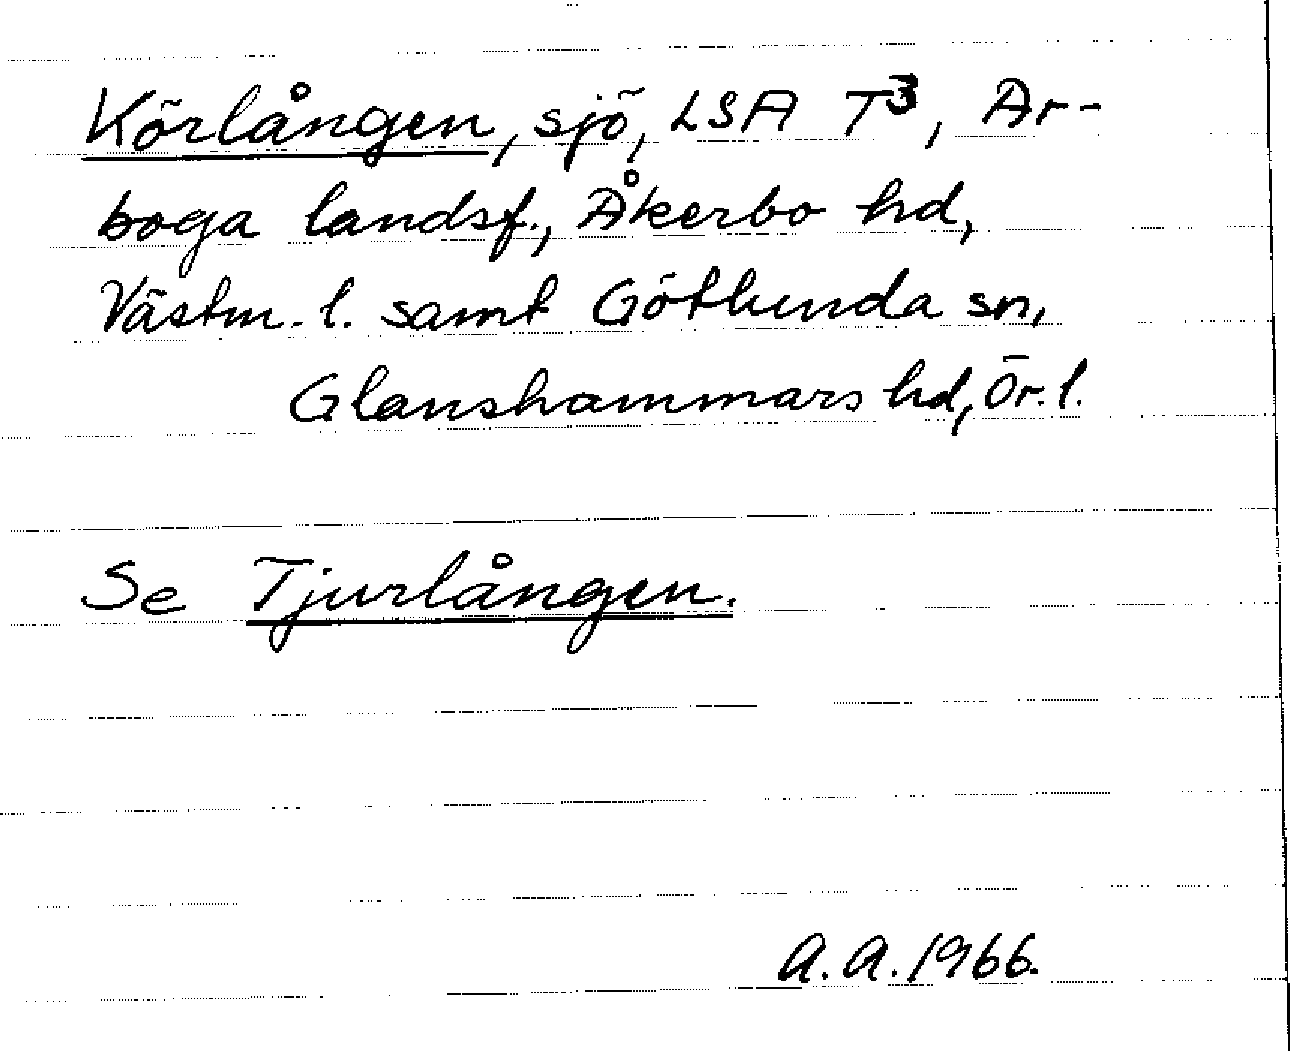 Körlången, sjö, LSA T³, Ar-
boga landsf., Åkerbo hd,
Västm. l. samt Götlunda sn,
Glanshammars hd, Ör. l.
Se Tjurlången.
A.A. 1966.